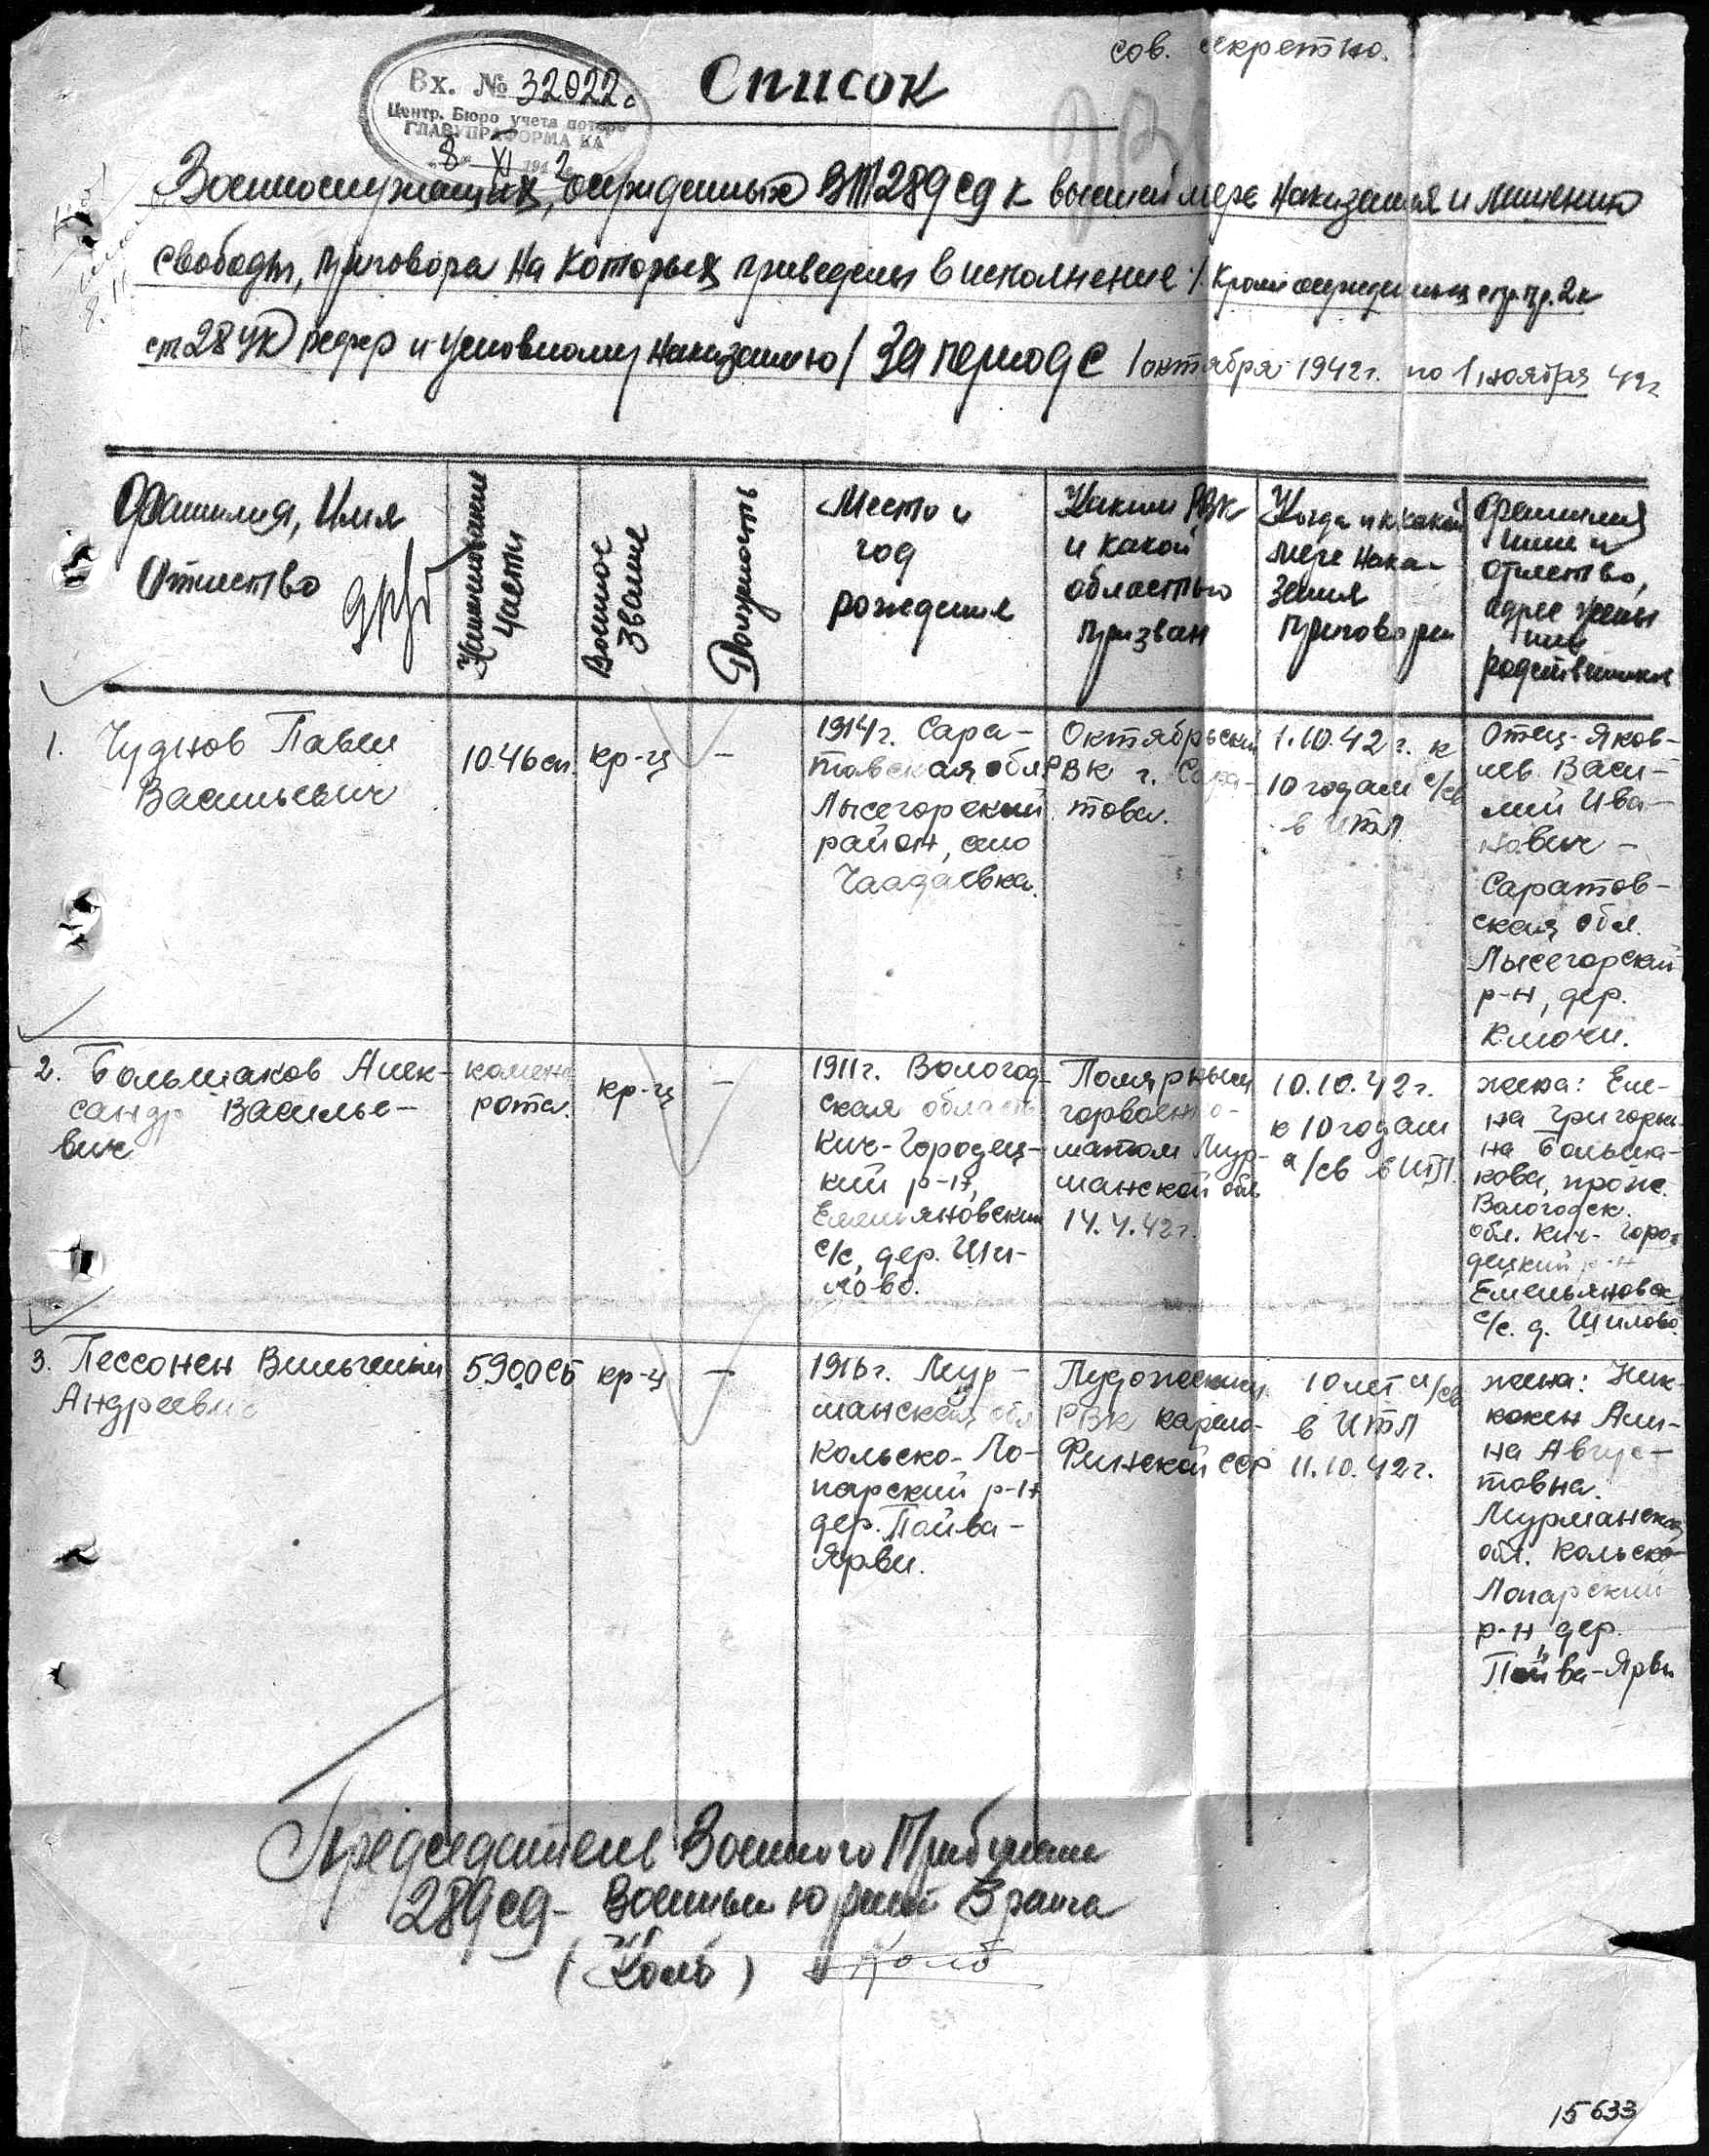 сов. секретно.
Список
Вх. № 32022с
Центр. Бюро учета потерь
ГЛАВУПРАФОРМА КА
"8" XI 1942
Военнослужащих, осужденных ВТ 289 сд к высшей мере наказания и лишению
свободы, приговора на которых приведены в исполнение /. Кроме осужденных с пр. 2 к
ст 28 УК РСФСР и условному наказанию/ За период с 1 октября 1942 г. по 1 ноября 42 г
Фамилия, Имя
Отчество
Наименование
части
Военное
звание
Должность
Место и
год
рождения
Каким РВК
и какой
областью
призван
Когда и к какой
мере нака-
зания
приговорен
Фамилия
имя и
отчество,
адрес жены
или
родственников
1. Чуднов Павел
Васильевич
1046 сп.
кр-ц
-
1914 г. Сара-
товская обл
Лысегорский
район, село
Чаадаевка.
Октябрьский
РВК г. Сара-
това.
1.10.42 г. к
10 годам л/св
в ИТЛ
Отец - Яков-
лев Васи-
лий Ива-
нович -
Саратов-
ская обл.
Лысегорский
р-н, дер.
Ключи.
2. Большаков Алек-
сандр Василье-
вич
комен
рота.
кр-ц
-
1911 г. Вологод-
ская область
Кич-Городец-
кий р-н,
Емельяновский
с/с, дер. Ши-
лово.
Полярным
горвоенко-
матом Мур-
манской обл.
14.4.42 г.
10.10.42 г.
к 10 годам
л/св в ИТЛ.
жена: Еле-
на Григорьев-
на Больша-
кова, прож.
Вологодск.
обл. Кич-Горо-
децкий р-н
Емельяновск
с/с. д. Шилово.
3. Пессонен Вильгельм
Андреевич
590 ОСБ
кр-ц
-
1916 г. Мур-
манская обл
Кольско-Ло-
парский р-н
дер. Пойва-
Ярви.
Пудожским
РВК Карело-
Финской ССР
10 лет л/св
в ИТЛ
11.10.42 г.
жена: Ник-
конен Али-
на Авгус-
товна.
Мурманская
обл. Кольско-
Лопарский
р-н, дер.
Пойва-Ярви
Председатель Военного Трибунала
289 сд - Военный юрист 3 ранга
(Колб) Колб
15633